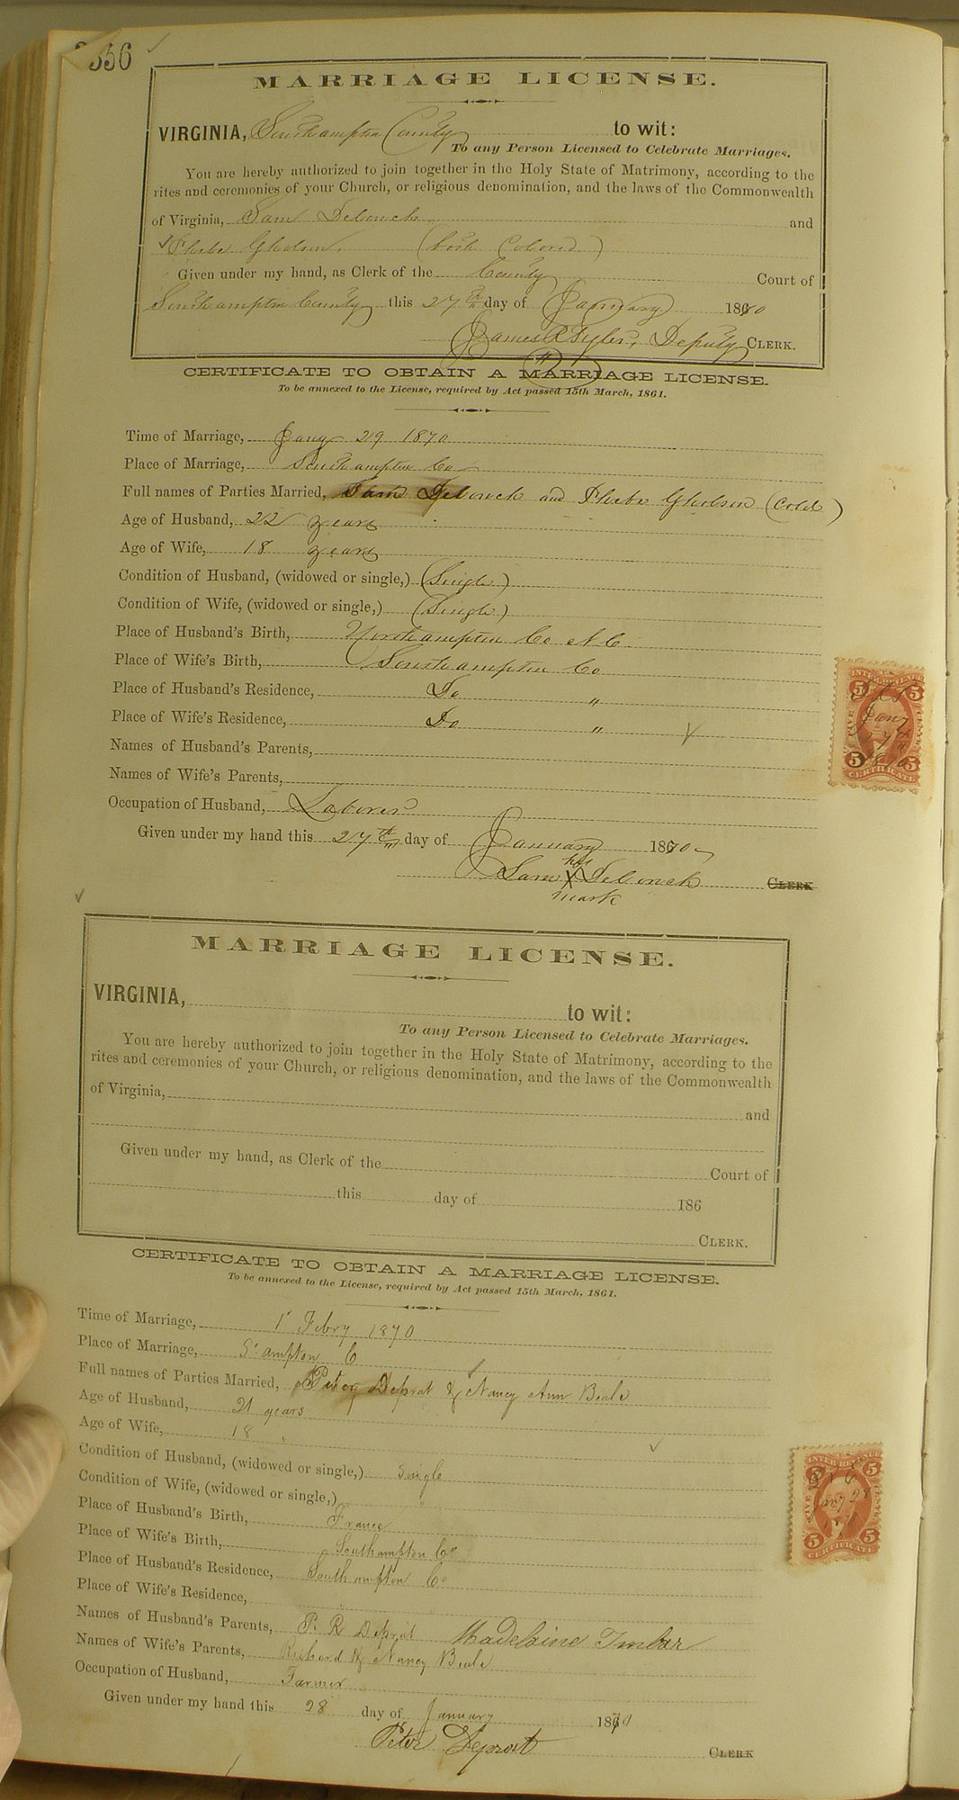 356
MARRIAGE LICENSE.
VIRGINIA, Southampton County to wit:
To any Person Licensed to Celebrate Marriages.
You are hereby authorized to join together in the Holy State of Matrimony, according to the
rites and ceremonies of your Church, or religious denomination, and the laws of the Commonwealth
of Virginia, Sam Delouch and
Phebe Gholson (both Colored)
Given under my hand, as Clerk of the County Court of
Southampton County this 27th day of January 1870
James R Tyler, Deputy CLERK.
CERTIFICATE TO OBTAIN A MARRIAGE LICENSE.
To be annexed to the License, required by Act passed 15th March, 1861.
Time of Marriage, Jany 29 1870
Place of Marriage, Southampton Co
Full names of Parties Married, Sam Delouch and Phebe Gholson (Cold)
Age of Husband, 22 years
Age of Wife, 18 years
Condition of Husband, (widowed or single,) (Single)
Condition of Wife, (widowed or single,) (Single)
Place of Husband's Birth, Northampton Co N.C.
Place of Wife's Birth, Southampton Co
Place of Husband's Residence, Do "
Place of Wife's Residence, Do "
Names of Husband's Parents,
Names of Wife's Parents,
Occupation of Husband, Laborer
Given under my hand this 27th day of January 1870
his
Sam X Delouch CLERK
mark
MARRIAGE LICENSE.
VIRGINIA, to wit:
To any Person Licensed to Celebrate Marriages.
You are hereby authorized to join together in the Holy State of Matrimony, according to the
rites and ceremonies of your Church, or religious denomination, and the laws of the Commonwealth
of Virginia, and
Given under my hand, as Clerk of the Court of
this day of 186
CLERK.
CERTIFICATE TO OBTAIN A MARRIAGE LICENSE.
To be annexed to the License, required by Act passed 15th March, 1861.
Time of Marriage, 1st Febry 1870
Place of Marriage, S'ampton C
Full names of Parties Married, Peter Deprat & Nancy Ann Beale
Age of Husband, 21 years
Age of Wife, 18 "
Condition of Husband, (widowed or single,) Single
Condition of Wife, (widowed or single,) "
Place of Husband's Birth, France
Place of Wife's Birth, Southampton Co
Place of Husband's Residence, Southampton Co
Place of Wife's Residence,
Names of Husband's Parents, P. R Deprat Madelaine
Names of Wife's Parents, Richard & Nancy Beale
Occupation of Husband, Farmer
Given under my hand this 28 day of January 1870
Peter Deprat CLERK
INTER REVENUE
5 5
FIVE CENTS
5 5
CERTIFICATE
INTER REVENUE
5 5
FIVE CENTS
5 5
CERTIFICATE